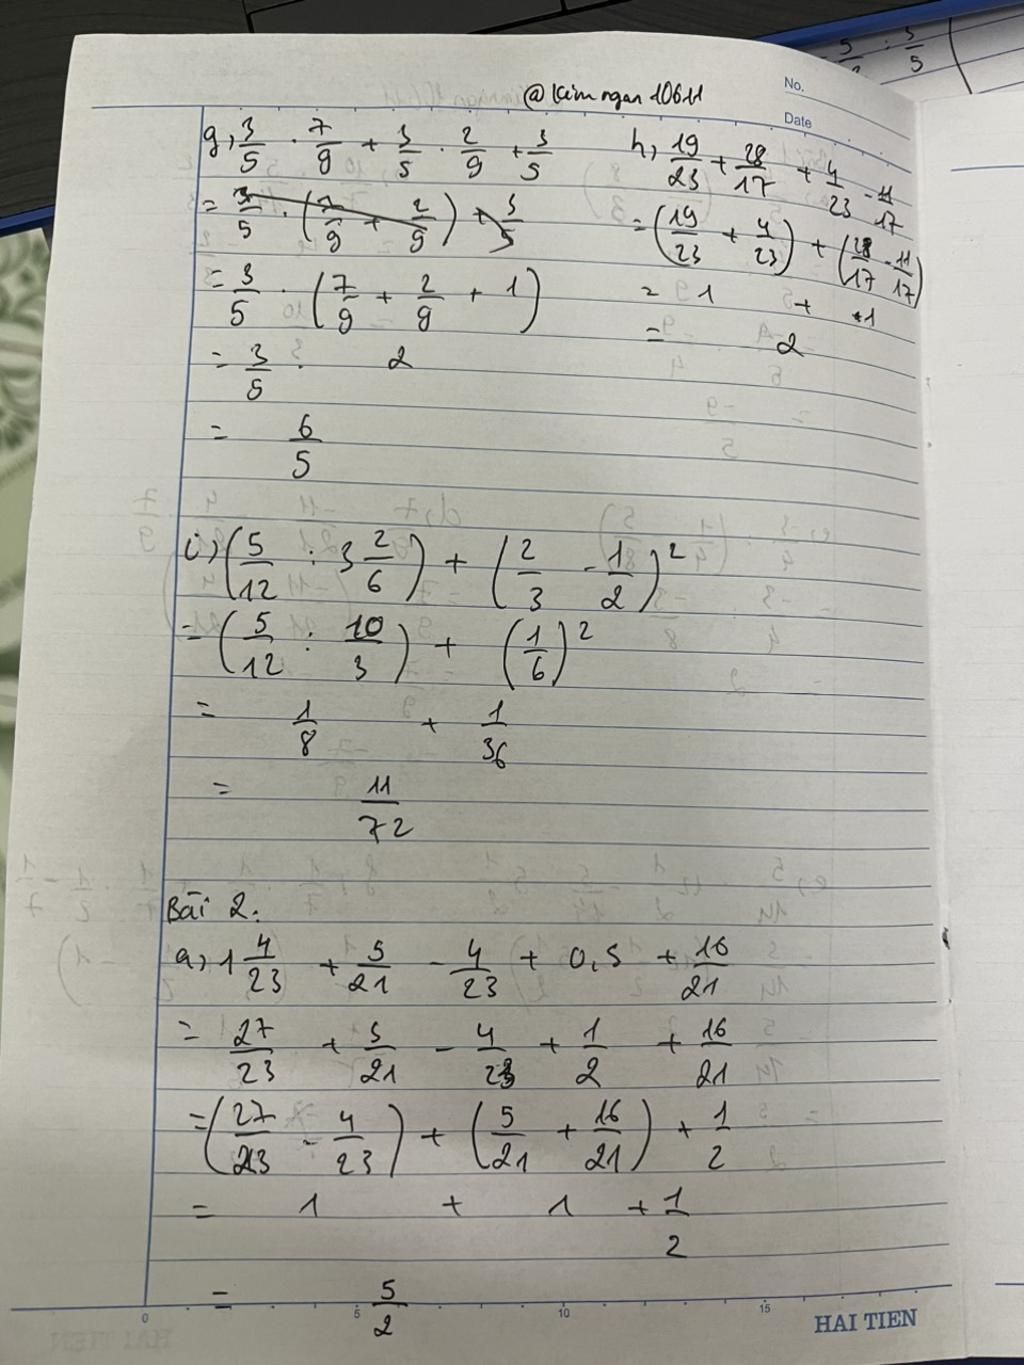 @kimngan10611
No.
Date
g, 3/5 . 7/9 + 3/5 . 2/9 + 3/5
= 3/5 . (7/9 + 2/9) + 3/5
= 3/5 . (7/9 + 2/9 + 1)
= 3/5 . 2
= 6/5
h, 19/23 + 28/17 + 4/23 - 11/17
= (19/23 + 4/23) + (28/17 - 11/17)
= 1 + 1
= 2
i) (5/12 : 3 2/6) + (2/3 - 1/2)²
= (5/12 : 10/3) + (1/6)²
= 1/8 + 1/36
= 11/72
Bài 2:
a, 1 4/23 + 5/21 - 4/23 + 0,5 + 16/21
= 27/23 + 5/21 - 4/23 + 1/2 + 16/21
= (27/23 - 4/23) + (5/21 + 16/21) + 1/2
= 1 + 1 + 1/2
= 5/2
0 5 10 15
HAI TIEN